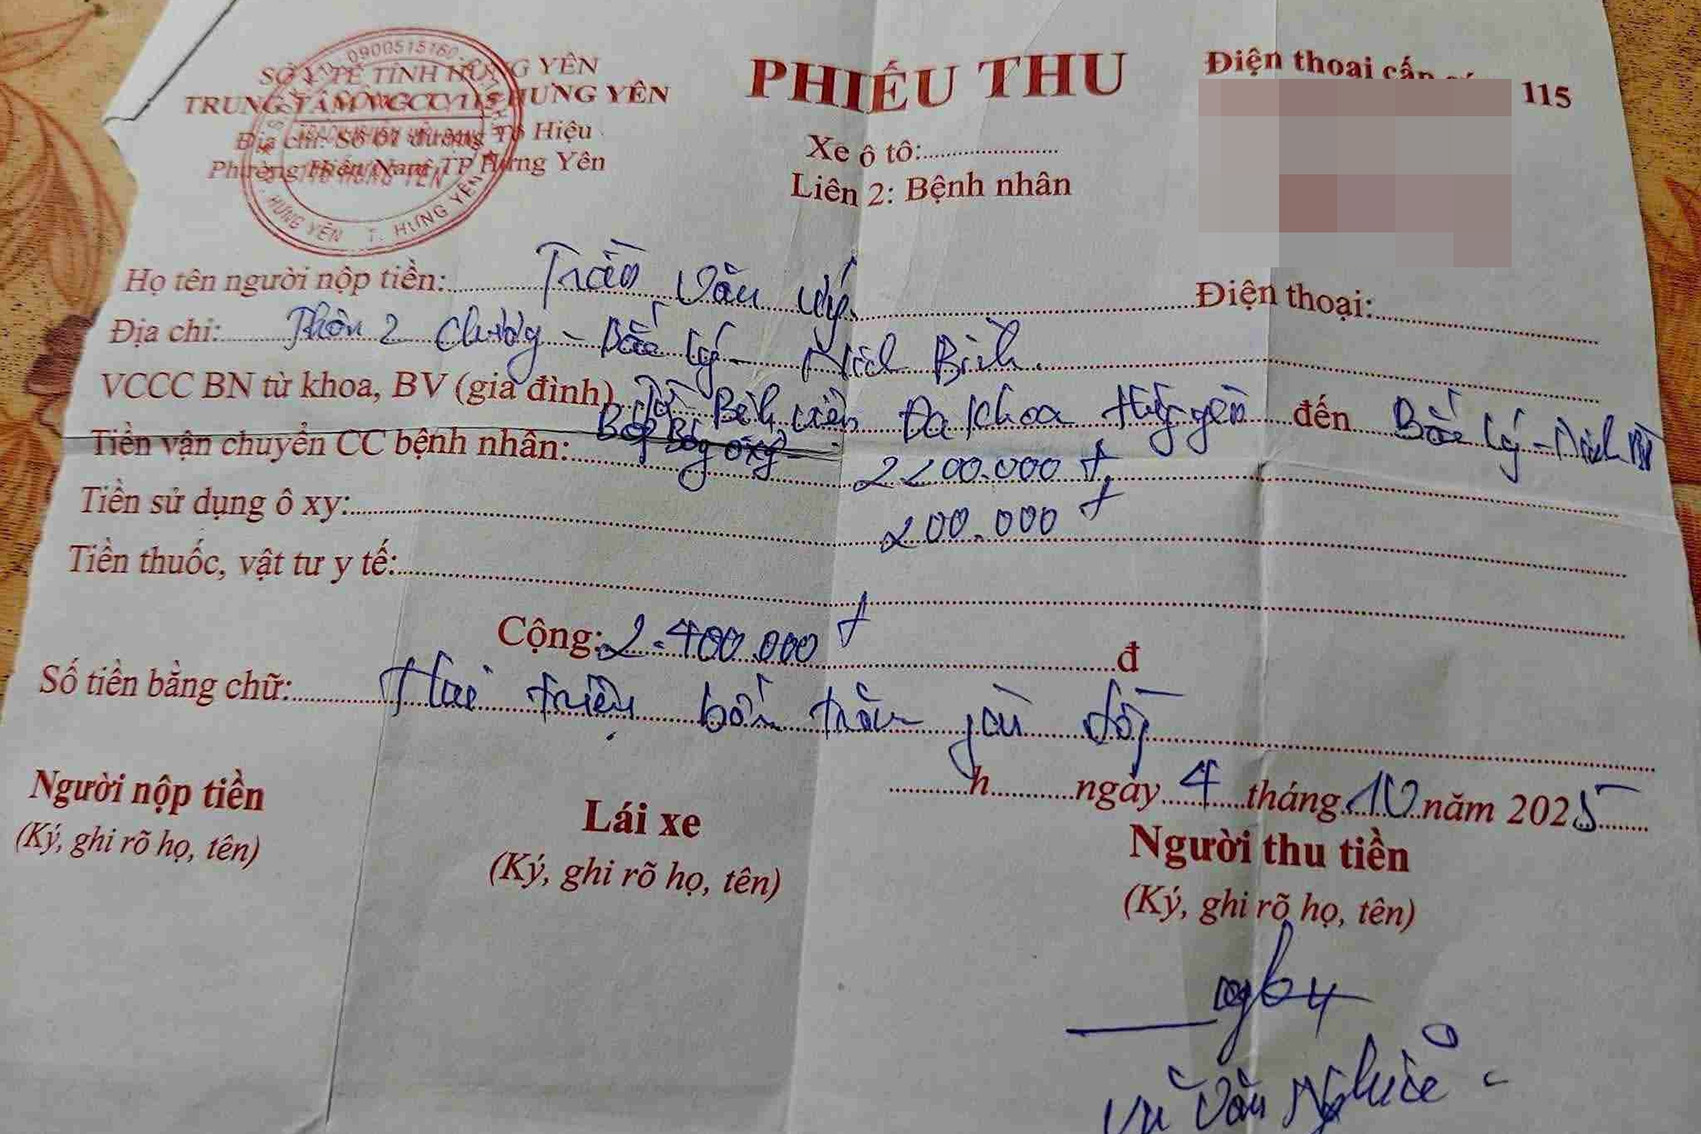 SỞ Y TẾ TỈNH HƯNG YÊN
TRUNG TÂM VCCC 115 HƯNG YÊN
Địa chỉ: Số 01 đường Tô Hiệu
Phường Hiến Nam TP Hưng Yên
0900515160
HƯNG YÊN T. HƯNG YÊN
PHIẾU THU
Xe ô tô:
Liên 2: Bệnh nhân
Điện thoại cấp 115
Họ tên người nộp tiền: Trần Văn Uý Điện thoại:
Địa chỉ: Thôn 2 Chương - Bắc Lý - Ninh Bình.
VCCC BN từ khoa, BV (gia đình) Từ Bệnh viện Đa khoa Hưng yên đến Bắc Lý - Ninh B
Tiền vận chuyển CC bệnh nhân: Bóp Bóng oxy 2200.000 đ
Tiền sử dụng ô xy: 200.000 đ
Tiền thuốc, vật tư y tế:
Cộng: 2.400.000 đ đ
Số tiền bằng chữ: Hai triệu bốn trăm ngàn đồng
h ngày 4 tháng 10 năm 2025
Người nộp tiền
(Ký, ghi rõ họ, tên)
Lái xe
(Ký, ghi rõ họ, tên)
Người thu tiền
(Ký, ghi rõ họ, tên)
Vũ Văn Nghiê